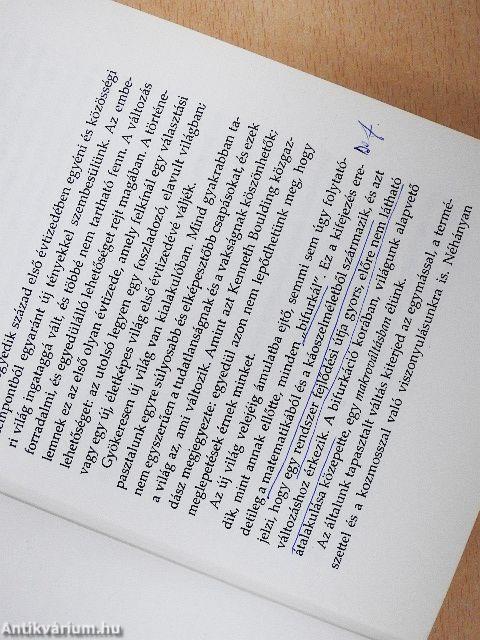 egyedik század első évtizedében egyéni és közösségi
mpontból egyaránt új tényekkel szembesülünk. Az embe-
ri világ ingataggá vált, és többé nem tartható fenn. A változás
forradalmi, és egyedülálló lehetőséget rejt magában. A történe-
lemnek ez az első olyan évtizede, amely felkínál egy választási
lehetőséget: az utolsó legyen egy foszladozó, elavult világban;
vagy egy új, életképes világ első évtizedévé váljék.
Gyökeresen új világ van kialakulóban. Mind gyakrabban ta-
pasztalunk egyre súlyosabb és elképesztőbb csapásokat, és ezek
nem egyszerűen a tudatlanságnak és a vakságnak köszönhetők;
a világ az, ami változik. Amint azt Kenneth Boulding közgaz-
dász megjegyezte: egyedül azon nem lepődhetünk meg, hogy
meglepetések érnek minket.
Az új világ velejéig ámulatba ejtő, semmi sem úgy folytató-
dik, mint annak előtte, minden „bifurkál". Ez a kifejezés ere-
detileg a matematikából és a káoszelméletből származik, és azt
jelzi, hogy egy rendszer fejlődési útja gyors, előre nem látható
változáshoz érkezik. A bifurkáció korában, világunk alapvető
átalakulása közepette, egy makrováltásban élünk.
Az általunk tapasztalt váltás kiterjed az egymással, a termé-
szettel és a kozmosszal való viszonyulásunkra is. Néhányan
Antikvárium.hu